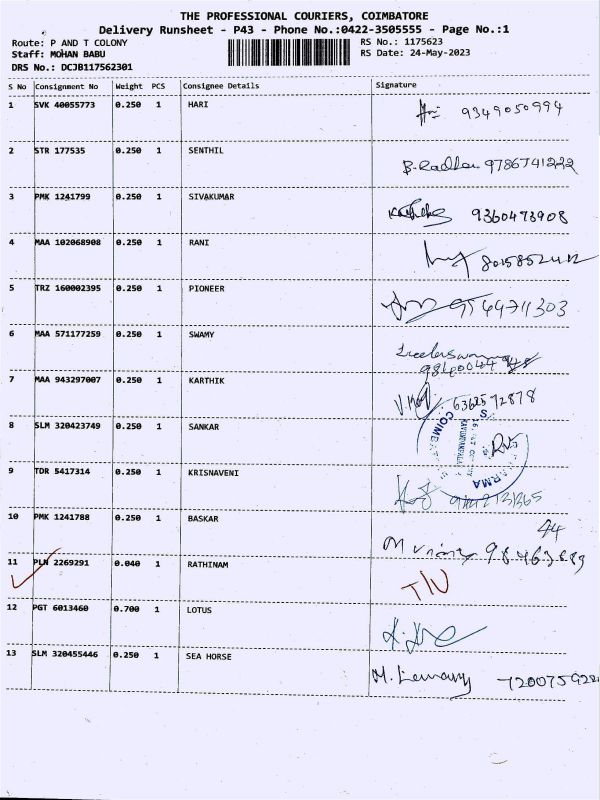 THE PROFESSIONAL COURIERS, COIMBATORE
Delivery Runsheet - P43 - Phone No.:0422-3505555 - Page No.:1
Route: P AND T COLONY
RS No.: 1175623
Staff: MOHAN BABU
RS Date: 24-May-2023
DRS No.: DCJB117562301
S No Consignment No Weight PCS Consignee Details Signature
1 SVK 40055773 0.250 1 HARI 9349050994
2 STR 177535 0.250 1 SENTHIL B-Radha 9786741222
3 PMK 1241799 0.250 1 SIVAKUMAR 9360473908
4 MAA 102068908 0.250 1 RANI
5 TRZ 160002395 0.250 1 PIONEER
6 MAA 571177259 0.250 1 SWAMY
7 MAA 943297007 0.250 1 KARTHIK 6362572878
8 SLM 320423749 0.250 1 SANKAR
9 TDR 5417314 0.250 1 KRISNAVENI
10 PMK 1241788 0.250 1 BASKAR
11 PLN 2269291 0.040 1 RATHINAM
12 PGT 6013460 0.700 1 LOTUS
13 SLM 320455446 0.250 1 SEA HORSE